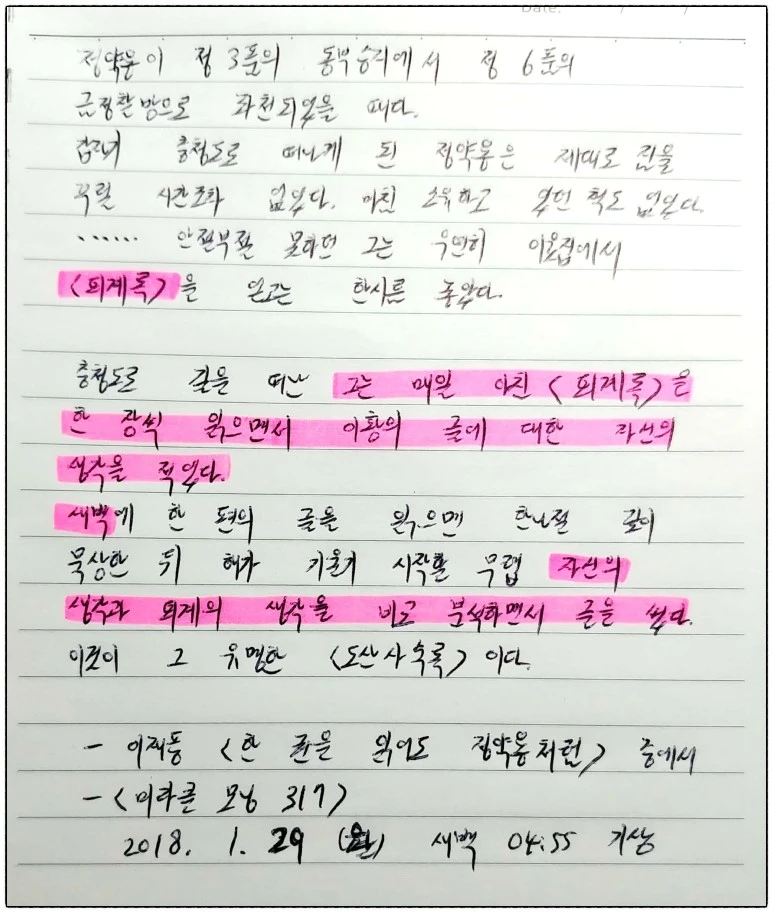 Date. / /
정약용이 정 3품의 동부승지에서 정 6품의
금정찰방으로 좌천되었을 때다.
갑자기 충청도로 떠나게 된 정약용은 제대로 짐을
꾸릴 시간조차 없었다. 마침 소유하고 있던 책도 없었다.
...... 안절부절 못하던 그는 우연히 이웃집에서
<퇴계록>을 얻고는 한시름 놓았다.
충청도로 길을 떠난 그는 매일 아침 <퇴계록>을
한 장씩 읽으면서 이황의 글에 대한 자신의
생각을 적었다.
새벽에 한 편의 글을 읽으면 한나절 깊이
묵상한 뒤 해가 기울기 시작할 무렵 자신의
생각과 퇴계의 생각을 비교 분석하면서 글을 썼다.
이것이 그 유명한 <도산사숙록> 이다.
- 이재풍 <한 권을 읽어도 정약용처럼> 중에서
- <미라클 모닝 317>
2018. 1. 29 (월) 새벽 04:55 기상